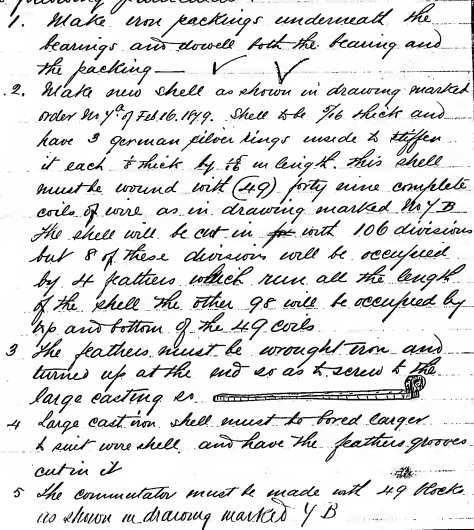 1. Make iron packings underneath the
bearings and dowell both the bearing and
the packing
2. Make new shell as shown in drawing marked
order No Yª of Feb 16. 1879. Shell to be 5/16 thick and
have 3 german silver rings inside to stiffen
it each thick by in length. this shell
must be wound with (49) forty nine complete
coils of wire as in drawing marked No Y B
The shell will be cut in with 106 divisions
but 8 of these divisions will be occupied
by 4 feathers which run all the length
of the shell the other 98 will be occupied by
top and bottom of the 49 coils
3 The feathers must be wrought iron and
turned up at the end so as to screw to the
large casting so
4 Large cast iron shell must be bored larger
to suit wire shell and have the feathers grooves
cut in it
5 The commutator must be made with 49 blocks
as shown in drawing marked Y B